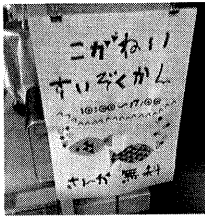 こがねい
すいぞくかん
10:00〜17:00
さんか 無料